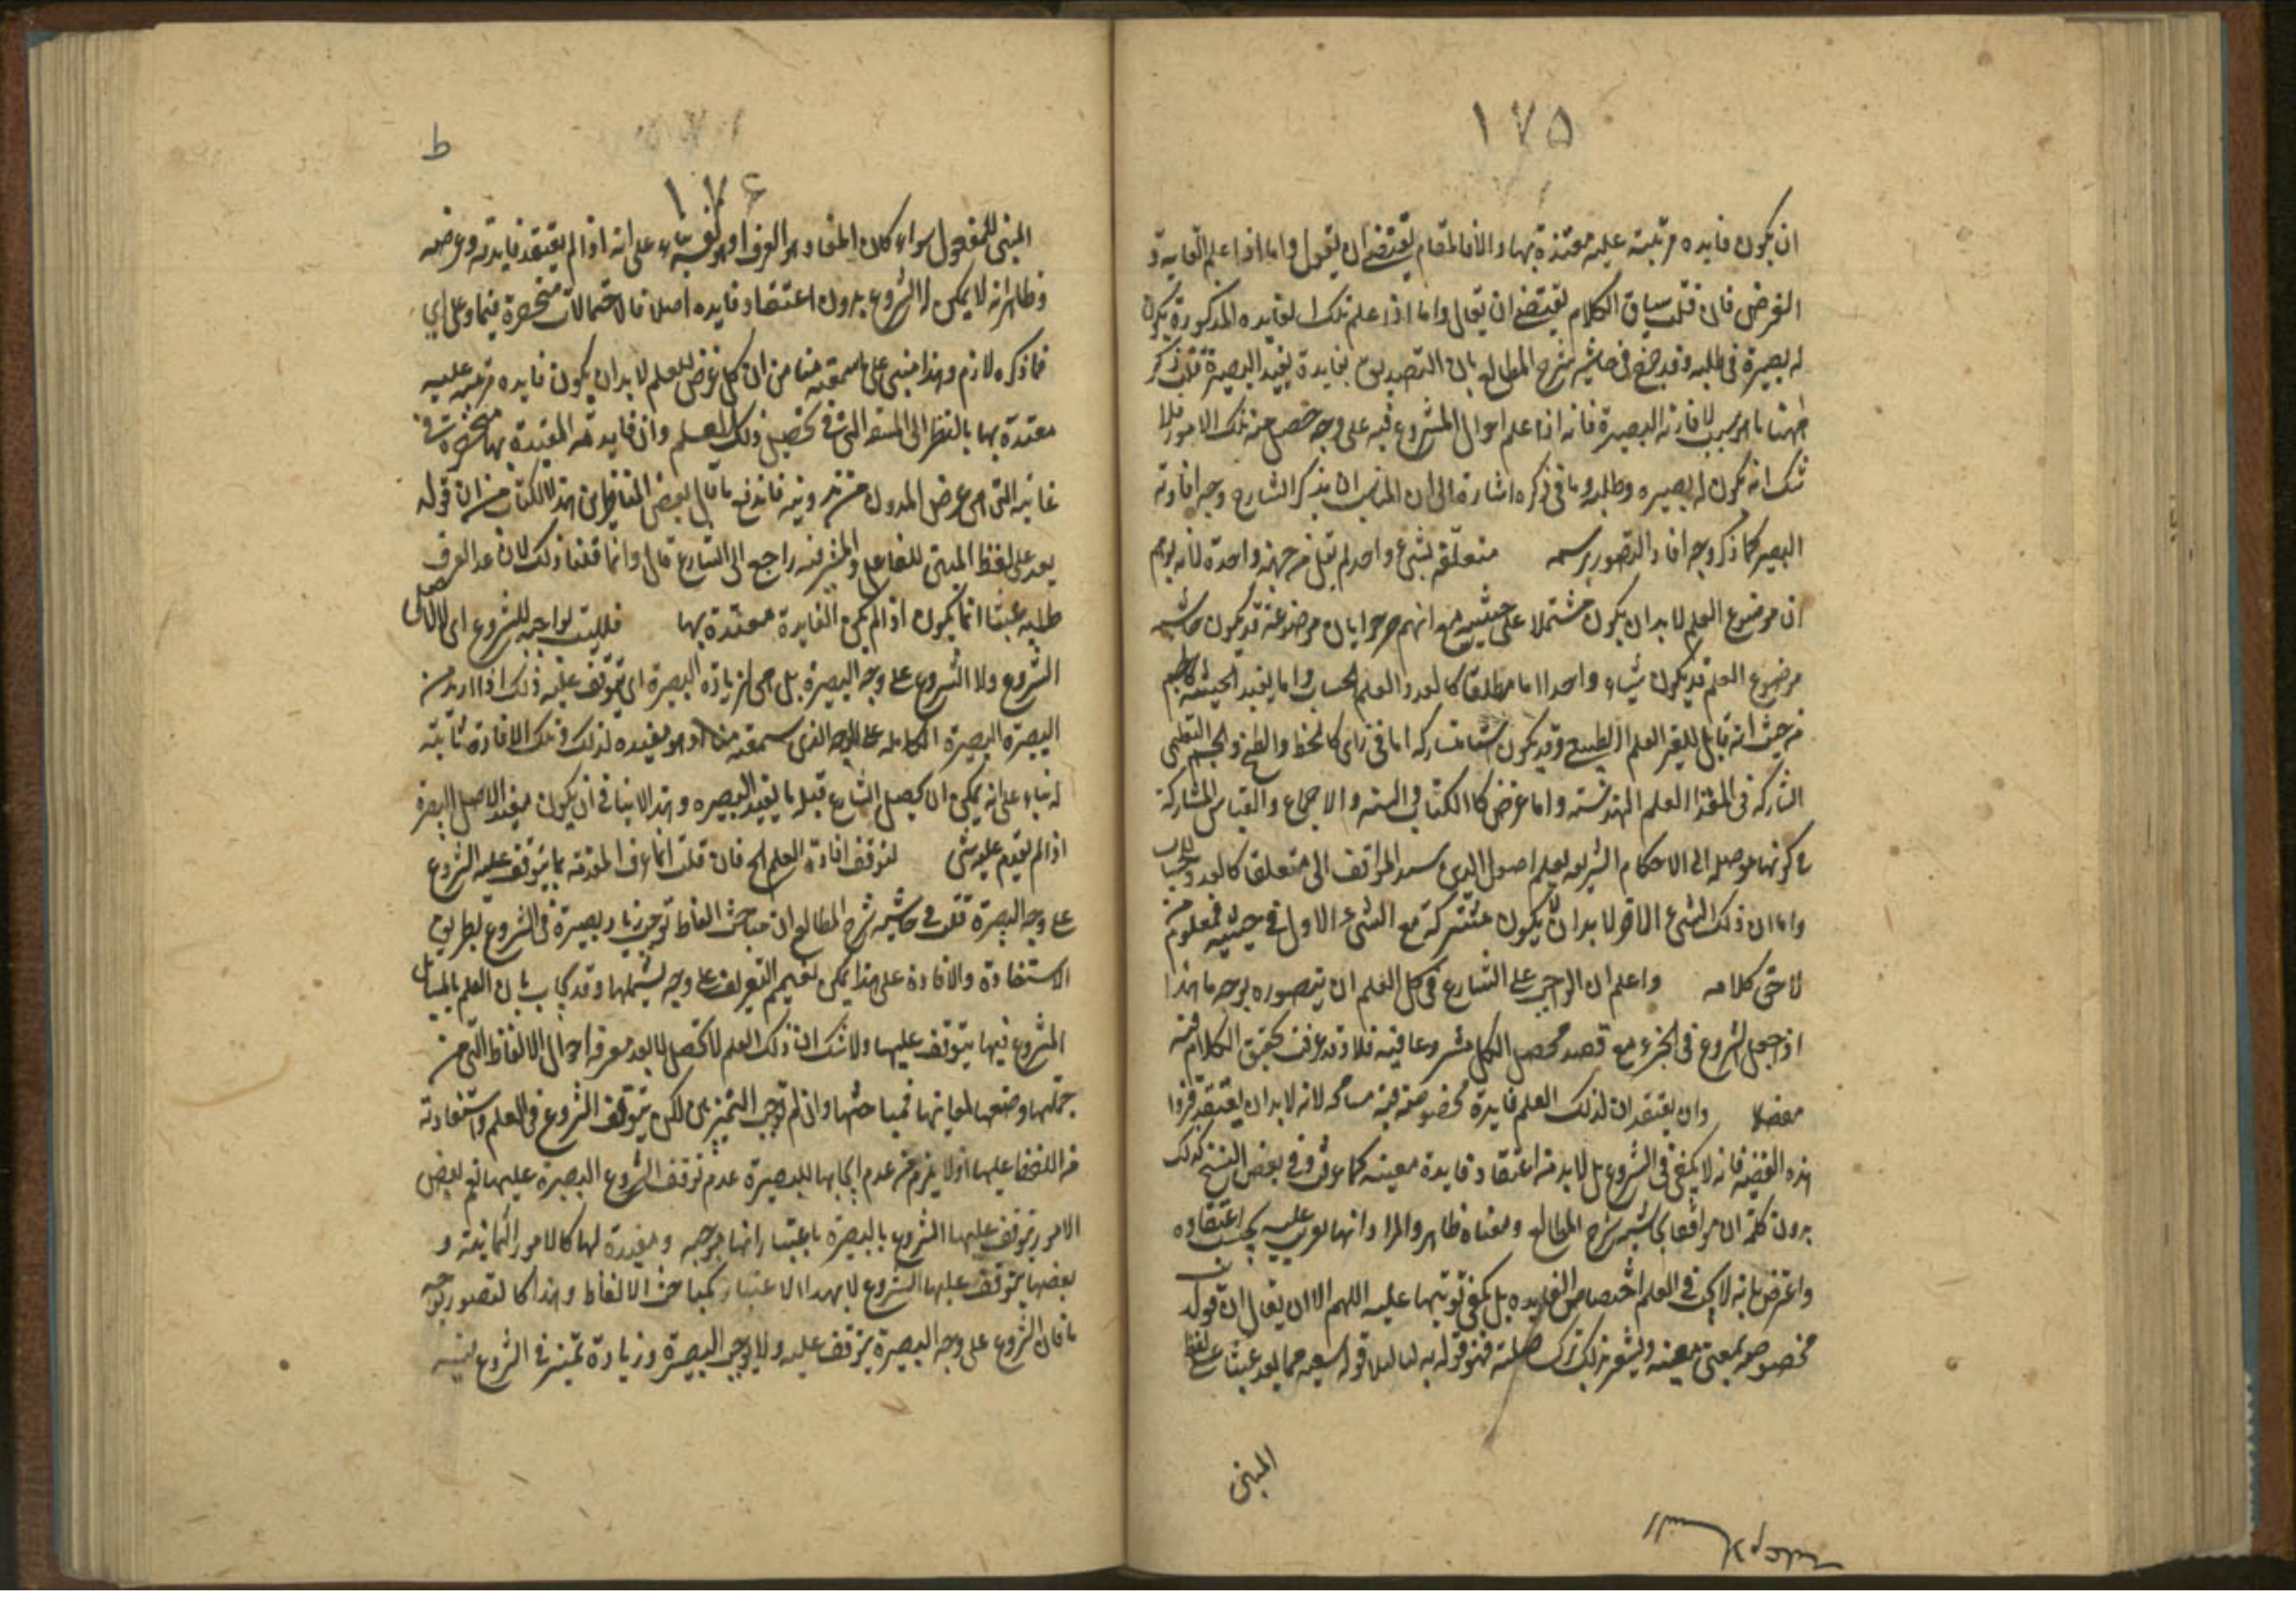 ١٧٥
ان يكون فايده مرتبته عليه معتدة بها والا فالمقام يقتضى ان يقول واما اذا علم الغاية و
الغرض فان قلت سياق الكلام يقتضى ان يقال واما اذا علم تلك الفايده المذكورة يكون
له بصيرة فى طلبه وقد صرح فى حاشية شرح المطالع بان التصديق بفايدة يفيد البصيرة قلت ذكر
لافادته البصيرة فانه اذا علم احوال المشروع فيه على وجه حصل منه تلك الامور فلا
شك انه يكون له بصيره وطلبه وما فى ذكره اشارة الى ان المناسب ان يذكر الشارح وجه افادته
البصيرة كما ذكر وجه افادة التصور برسمه متعلقة بشئ واحد لم يقل من جهة واحدة لانه يوهم
ان موضوع العلم لا بد ان يكون مشتملا على حيثية مع انهم صرحوا بان موضوعه قد يكون
موضوع العلم قد يكون شيئا واحدا اما مطلقا كالعدد والعلم الحساب واما يفيد الحيثية كالجسم
من حيث انه قابل للتغير العلم الطبيعى وقد يكون اشيا متشاركه اما فى ذاتى كالخط والسطح والجسم التعليمى
المشاركه فى المقدار العلم الهندسة واما عرضى كالكتاب والسنه والاجماع والقياس المشاركة
فى كونها موصله الى الاحكام الشرعيه لعلم اصول الدين المواقف الى متعلق كالعدد
واما ان ذلك الشئ الاخر لا بد ان يكون مشتركة مع الشئ الاول فى حيثية فمعلوم من
لاحق كلامه واعلم ان الواجب على الشارع فى كل العلم ان يتصوره بوجه ما هذا
اذا جعل الشروع فى الجزء مع قصد تحصيل الكل مشروعا فيه فلا وقد عرفت تحقيق الكلام فيه
مفصلا وان يعتقد ان لذلك العلم فايدة مخصوصة فيه مسامحه لانه لا بد ان يعتقد
هذه القضية فانه لا يكفى فى الشروع بل لا بد منه اعتقاد فايدة معينه كما عرفت وفى بعض النسخ كذلك
بدون كلمة ان موافقا لحاشية شرح المطالع ومعناه ظاهر والمراد انها تعريب عليه بحسب اعتقاده
واعترض بانه لا يجب فى العلم اختصاص الفايده بل يكفى ترتيبها عليه اللهم الا ان يقال ان قوله
مخصوصه بمعنى معينه ويشعر بذلك ترك صلته
المبنى
١٧٦
ط
المبنى للمفعول سواء كان المفاد هو العرف او بناء على انه اذا لم يعتقد فايدته وغرضه
وظاهر انه لا يمكن الشروع بدون اعتقاد فايده اصلا فالاحتمالات منحصرة فيهما وعلى اى
ما ذكره لازم وهذا مبنى على ما سمعته منا من ان كل غرض للعلم لا بد ان يكون فايده مرتبته عليه
معتدة بها بالنظر الى المشقه التى فى تحصيل ذلك العلم وان فايدته المعتدة بها منحصرة فى
غايته التى هى غرض المدون من تدوينه فاندفع ما قال بعض الناظرين هذا الكتاب من ان قوله
يعد على لفظ المبنى للفاعل والمستتر فيه راجع الى الشارع قال وانما قلنا ذلك لان عد العرف
طلبه عبثا انما يكون اذا لم يكن الفايدة معتدة بها فليست بواجبة للشروع اى لا لاصل
الشروع ولا الشروع على وجه البصيرة بل هى لزيادة البصيرة اى يتوقف عليه ذلك اذا اريد من
البصيرة البصيرة الكامله على الوجه الذى سمعته منا او هو يفيده لذلك وتلك الافادة ثابتة
له بناء على انه يمكن ان يحصل الشارع قبله ما يفيد البصيره وهذا لا ينافى ان يكون مفيدا لاصل البصيرة
اذا لم يقدم عليه شئ لتوقف افادة العلم الخ فان قلت انما عرف المقدمة بما يتوقف عليه الشروع
على وجه البصيرة قلت فى حاشية شرح المطالع ان مباحث الفاظ توجب زيادة بصيرة فى الشروع بطريق
الاستفادة والافادة على هذا يمكن تعميم التعريف على وجه يشملها وقد يجاب بان العلم بالمسايل
المشروع فيها يتوقف عليها ولا شك ان ذلك العلم لا يحصل الا بعد معرفة احوال الالفاظ التى من
جملتها وضعها لمعانيها فمباحثها وان لم توجب التمييز لكن يتوقف الشروع فى العلم واستفادته
من الالفاظ عليها اذ لا يلزم من عدم ايجابها للبصيرة عدم توقف الشروع البصيرة عليها نعم بعض
الامور يتوقف عليها الشروع بالبصيرة باعتبار انها موجبه ومفيدة لها كالامور الثمانية و
بعضها يتوقف عليها الشروع لا بهذا الاعتبار كمباحث الالفاظ وهذا كالتصور بوجه
ما فان الشروع على وجه البصيرة يتوقف عليه ولا يوجب البصيرة وزيادة تمييز فى الشروع فيه